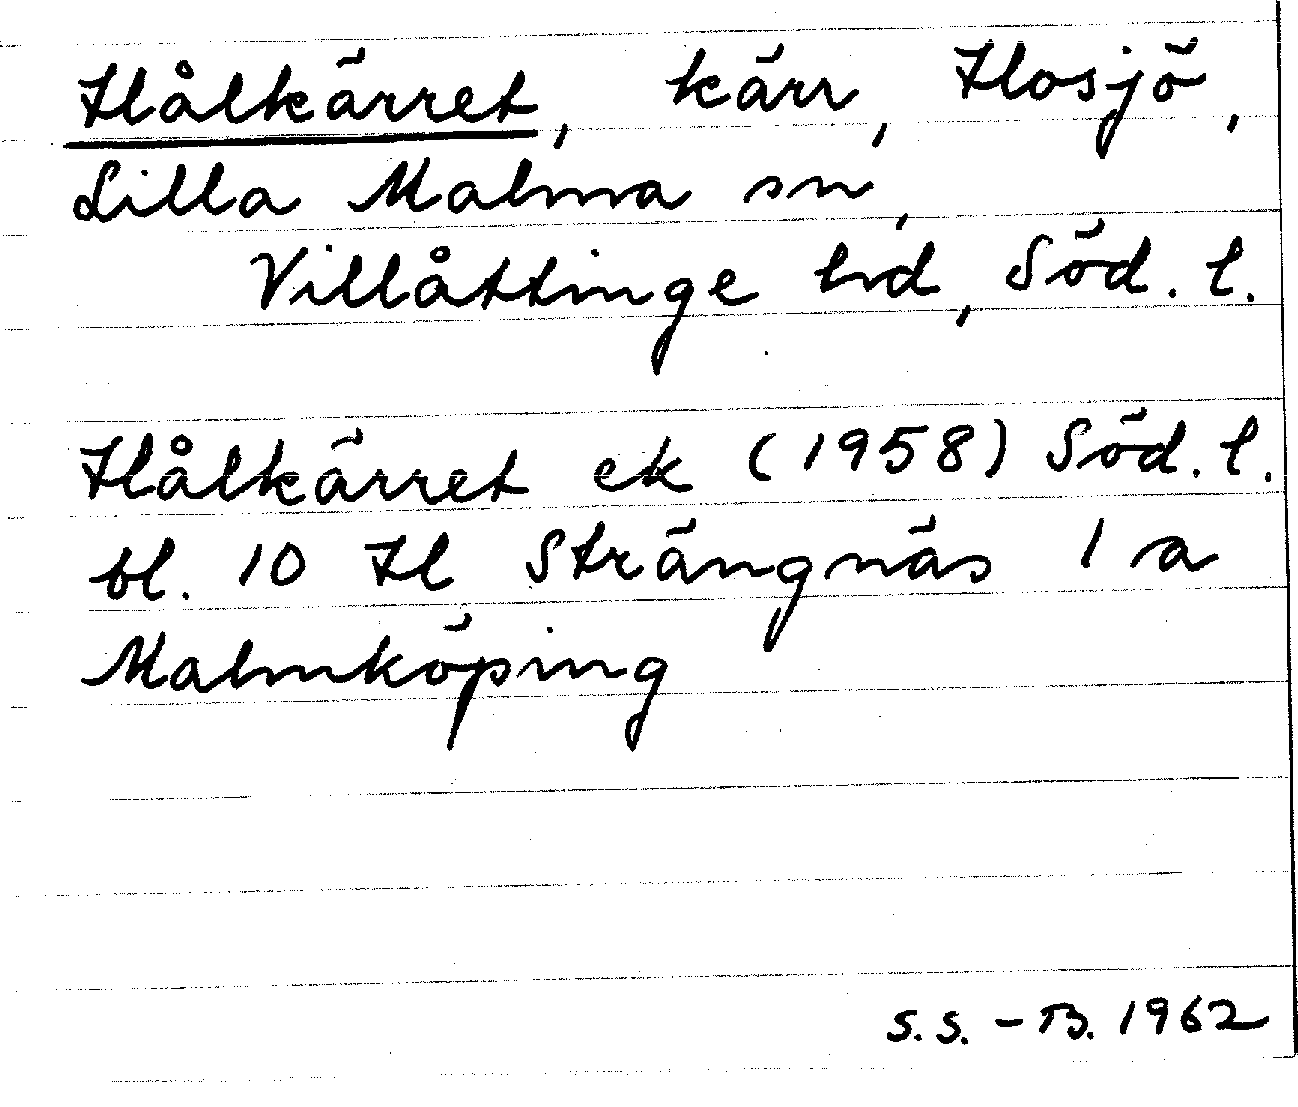 Hålkärret, kärr, Hosjö,
Lilla Malma sn,
Villåttinge hd, Söd. l.
Hålkärret ek (1958) Söd. l.
bl. 10 H Strängnäs 1 a
Malmköping
S.S. - B. 1962